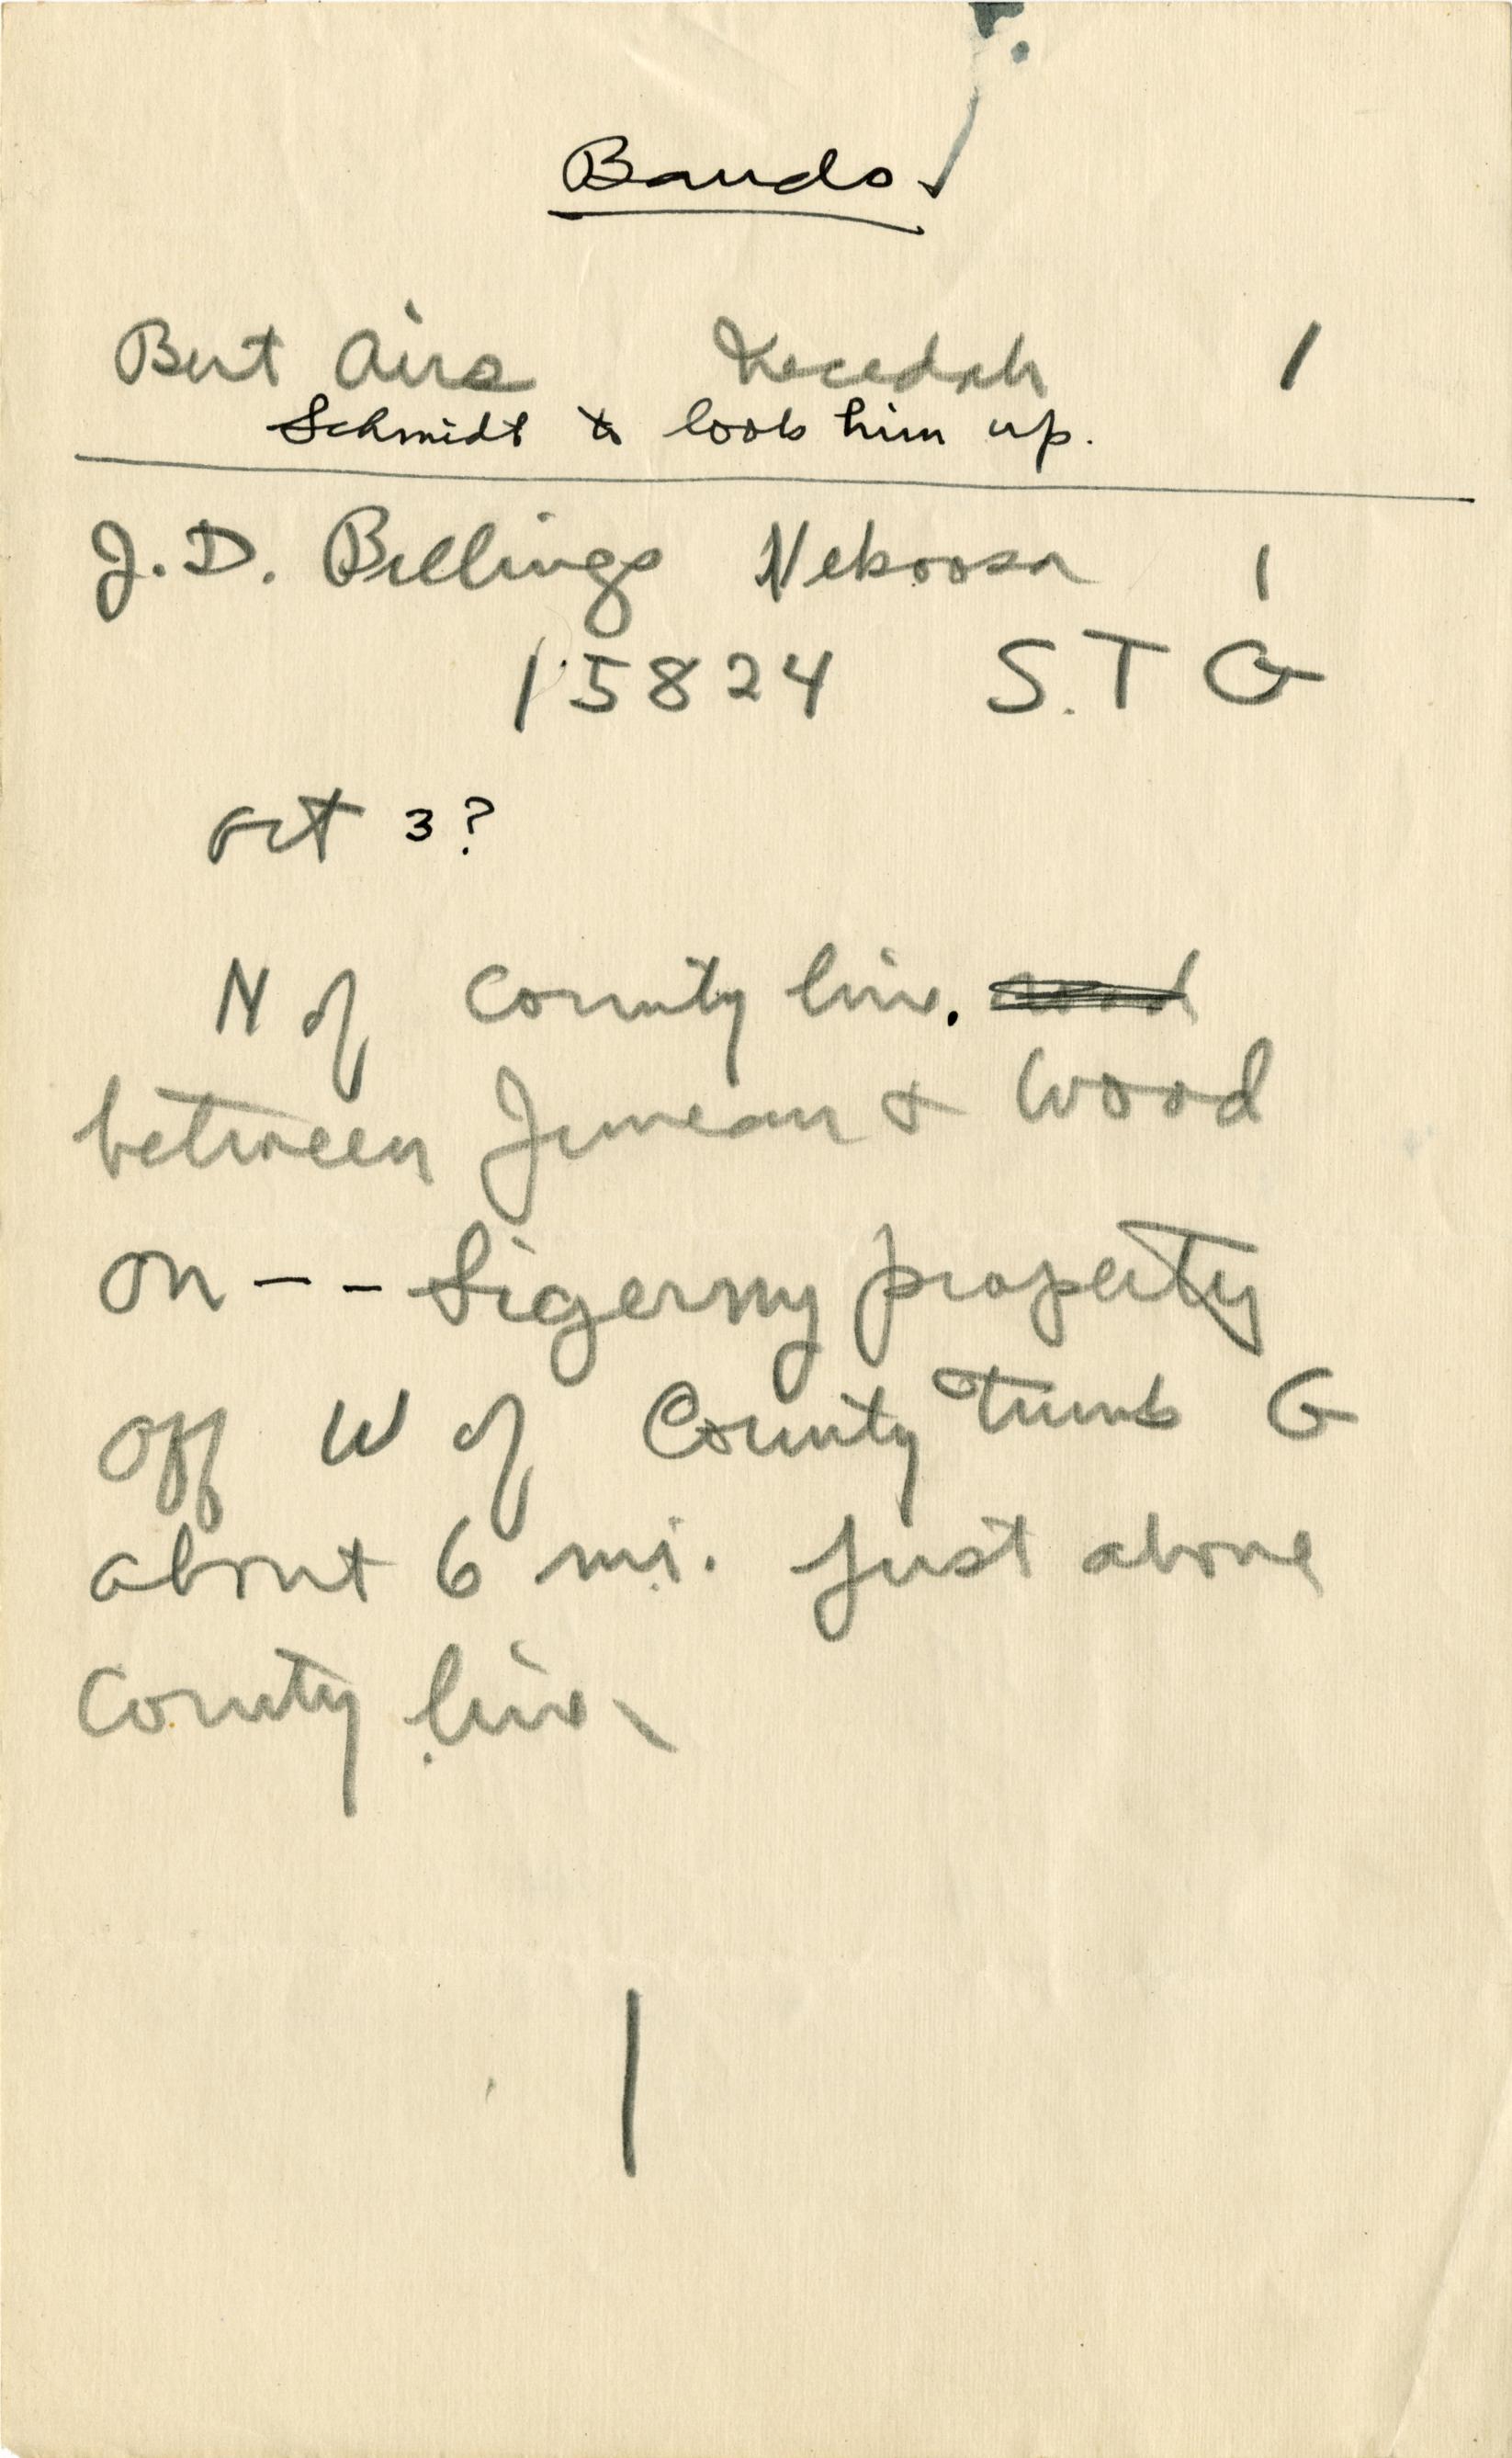 Bands
Bert Airs Necedah 1
Schmidt to look him up.
J.D. Billings Nekoosa 1
15824 S.T G
Oct 3?
N of County line.
between Juneau & Wood
on -- Sigerny property
off W of County trunk G
about 6 mi. just above
County line